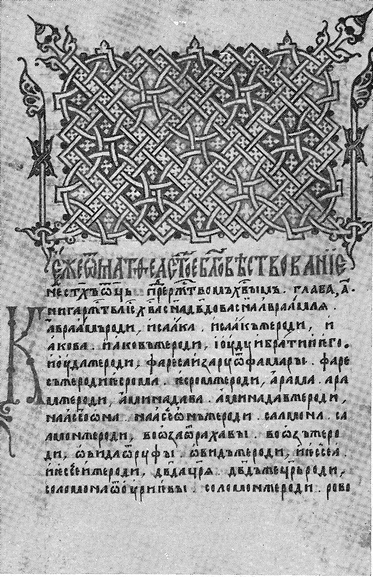 Е́же ѿ матѳеа ст҃ое бл҃говѣствованїе
не ст҃хъ ѿць пре рж҃твомъ х҃вымъ . глава, а҃.
Книга рж҃тва і҃с х҃ва сн҃а дв҃дова сн҃а авраамля .
авраамъроди, исаака . исаакъжероди, и
акова . иаковъжероди, іоудуибратиюего .
иоудажероди, фаресаизаруѿфамары . фаре
съжеродиесрома . есромжероди, арама . ара
мжероди, аминадава . аминадавжероди,
наассѡна . наассѡнъжероди . салмона . са
лмонжероди, воѡзаѿрахавы . воѡзъжеро
ди, ѡвидаѿруфы . ѡвидъжероди, иессеа .
иессеижероди, дв҃дацр҃я . дв҃дъжецр҃ьроди,
соломонаѿоуриевы . соломонжероди . рово